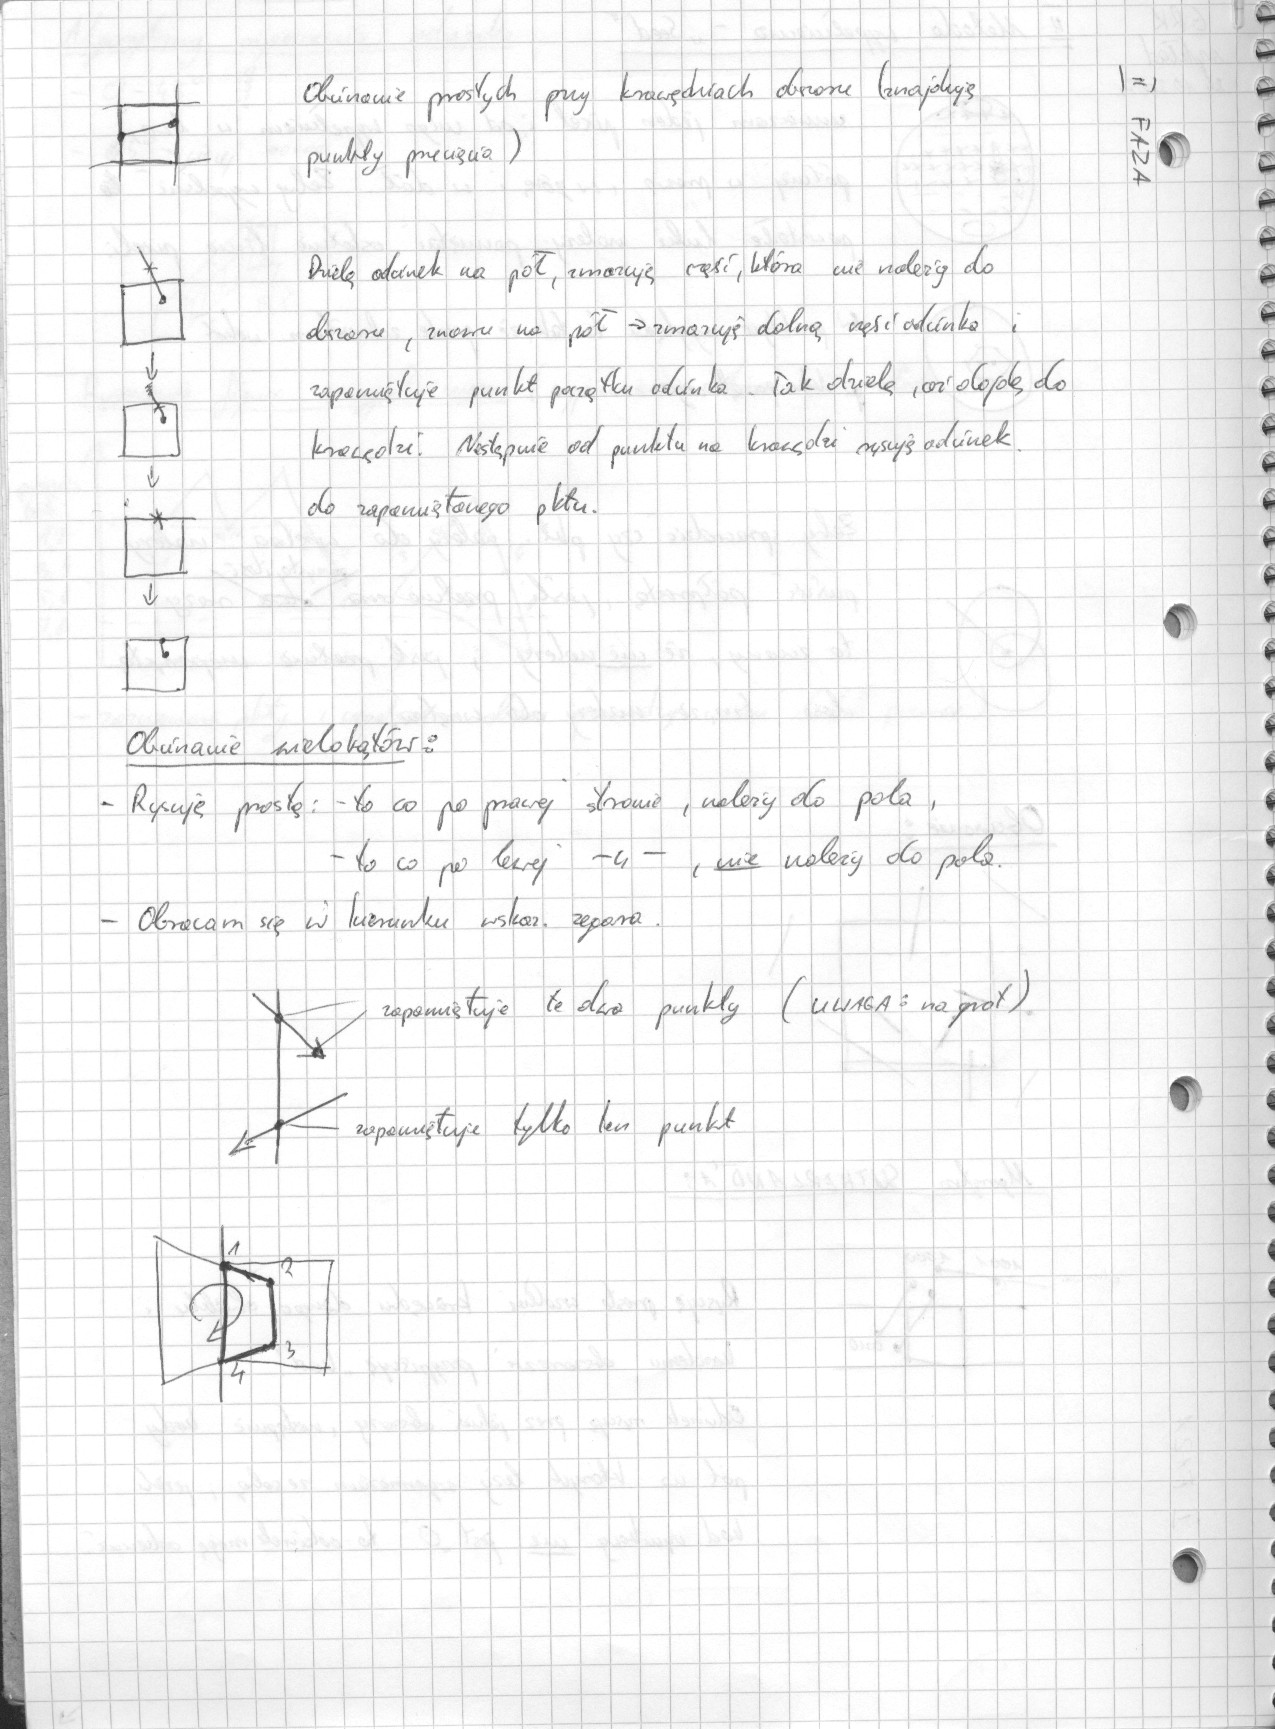 II) FAZA
Obcinanie prostych przy krawędziach obszaru (znajduję
punkty przecięcia)
Dzielę odcinek na pół, zmazuję część, która nie należy do
obszaru, znowu na pół → zmazuję dolną część odcinka i
zapamiętuje punkt początku odcinka. Tak dzielę, aż dojdę do
krawędzi. Następnie od punktu na krawędzi rysuję odcinek
do zapamiętanego pktu.
Obcinanie wielokątów:
- Rysuję prostą: - to co po prawej stronie, należy do pola,
- to co po lewej -"-, nie należy do pola.
- Obracam się w kierunku wskaz. zegara.
zapamiętuje te dwa punkty (UWAGA: na grot)
zapamiętuje tylko ten punkt
1
2
3
4